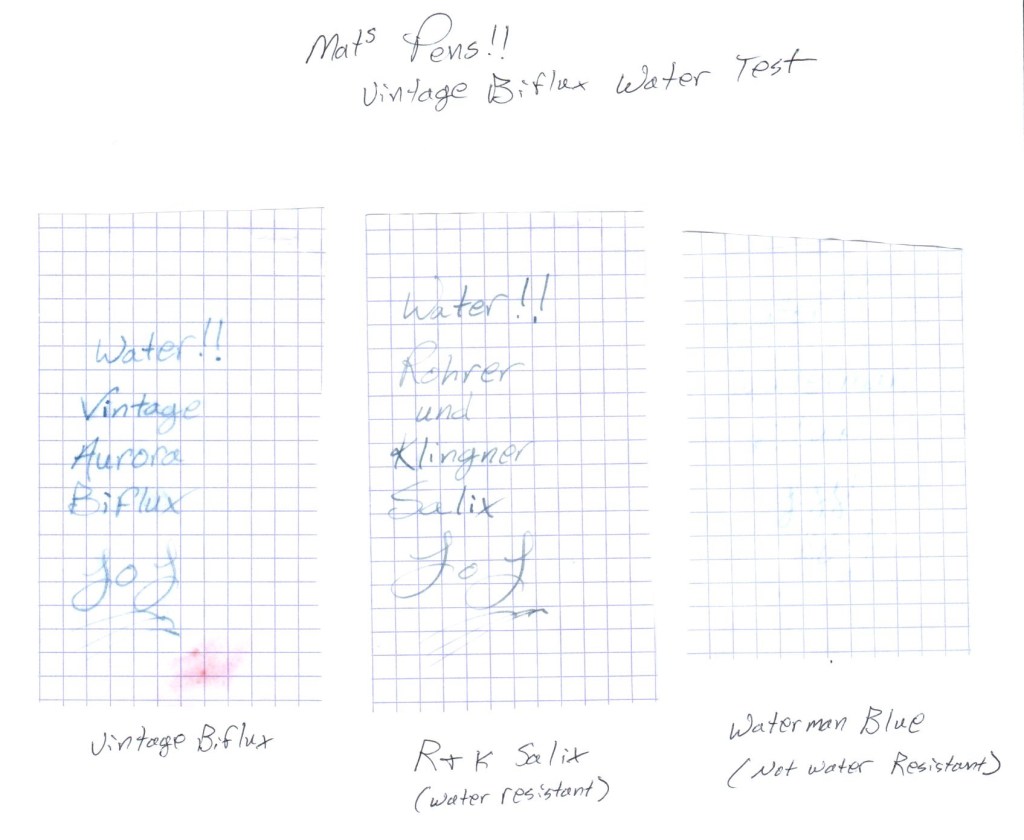 Mats Pens!!
Vintage Biflux Water Test
Water!!
Vintage
Aurora
Biflux
Water!!
Rohrer
und
Klingner
Salix
Vintage Biflux
R+K Salix
(water resistant)
Waterman Blue
(Not water Resistant)